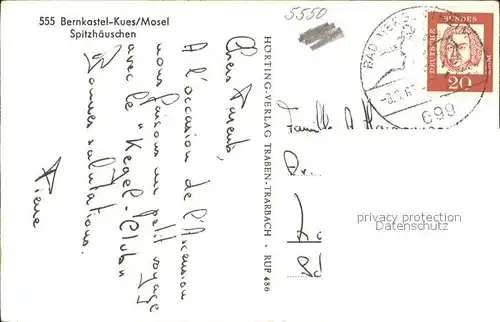 555 Bernkastel-Kues/Mosel
Spitzhäuschen
5550
Chers Parents,
A l'occasion de l'Ascension
nous faisons un petit voyage
avec le "Kegel-Club"
Bonnes salutations.
HÖRTING-VERLAG TRABEN-TRARBACH · RUF 486
DEUTSCHE BUNDESPOST
20
BAD
699
Famille
privacy protection
Datenschutz